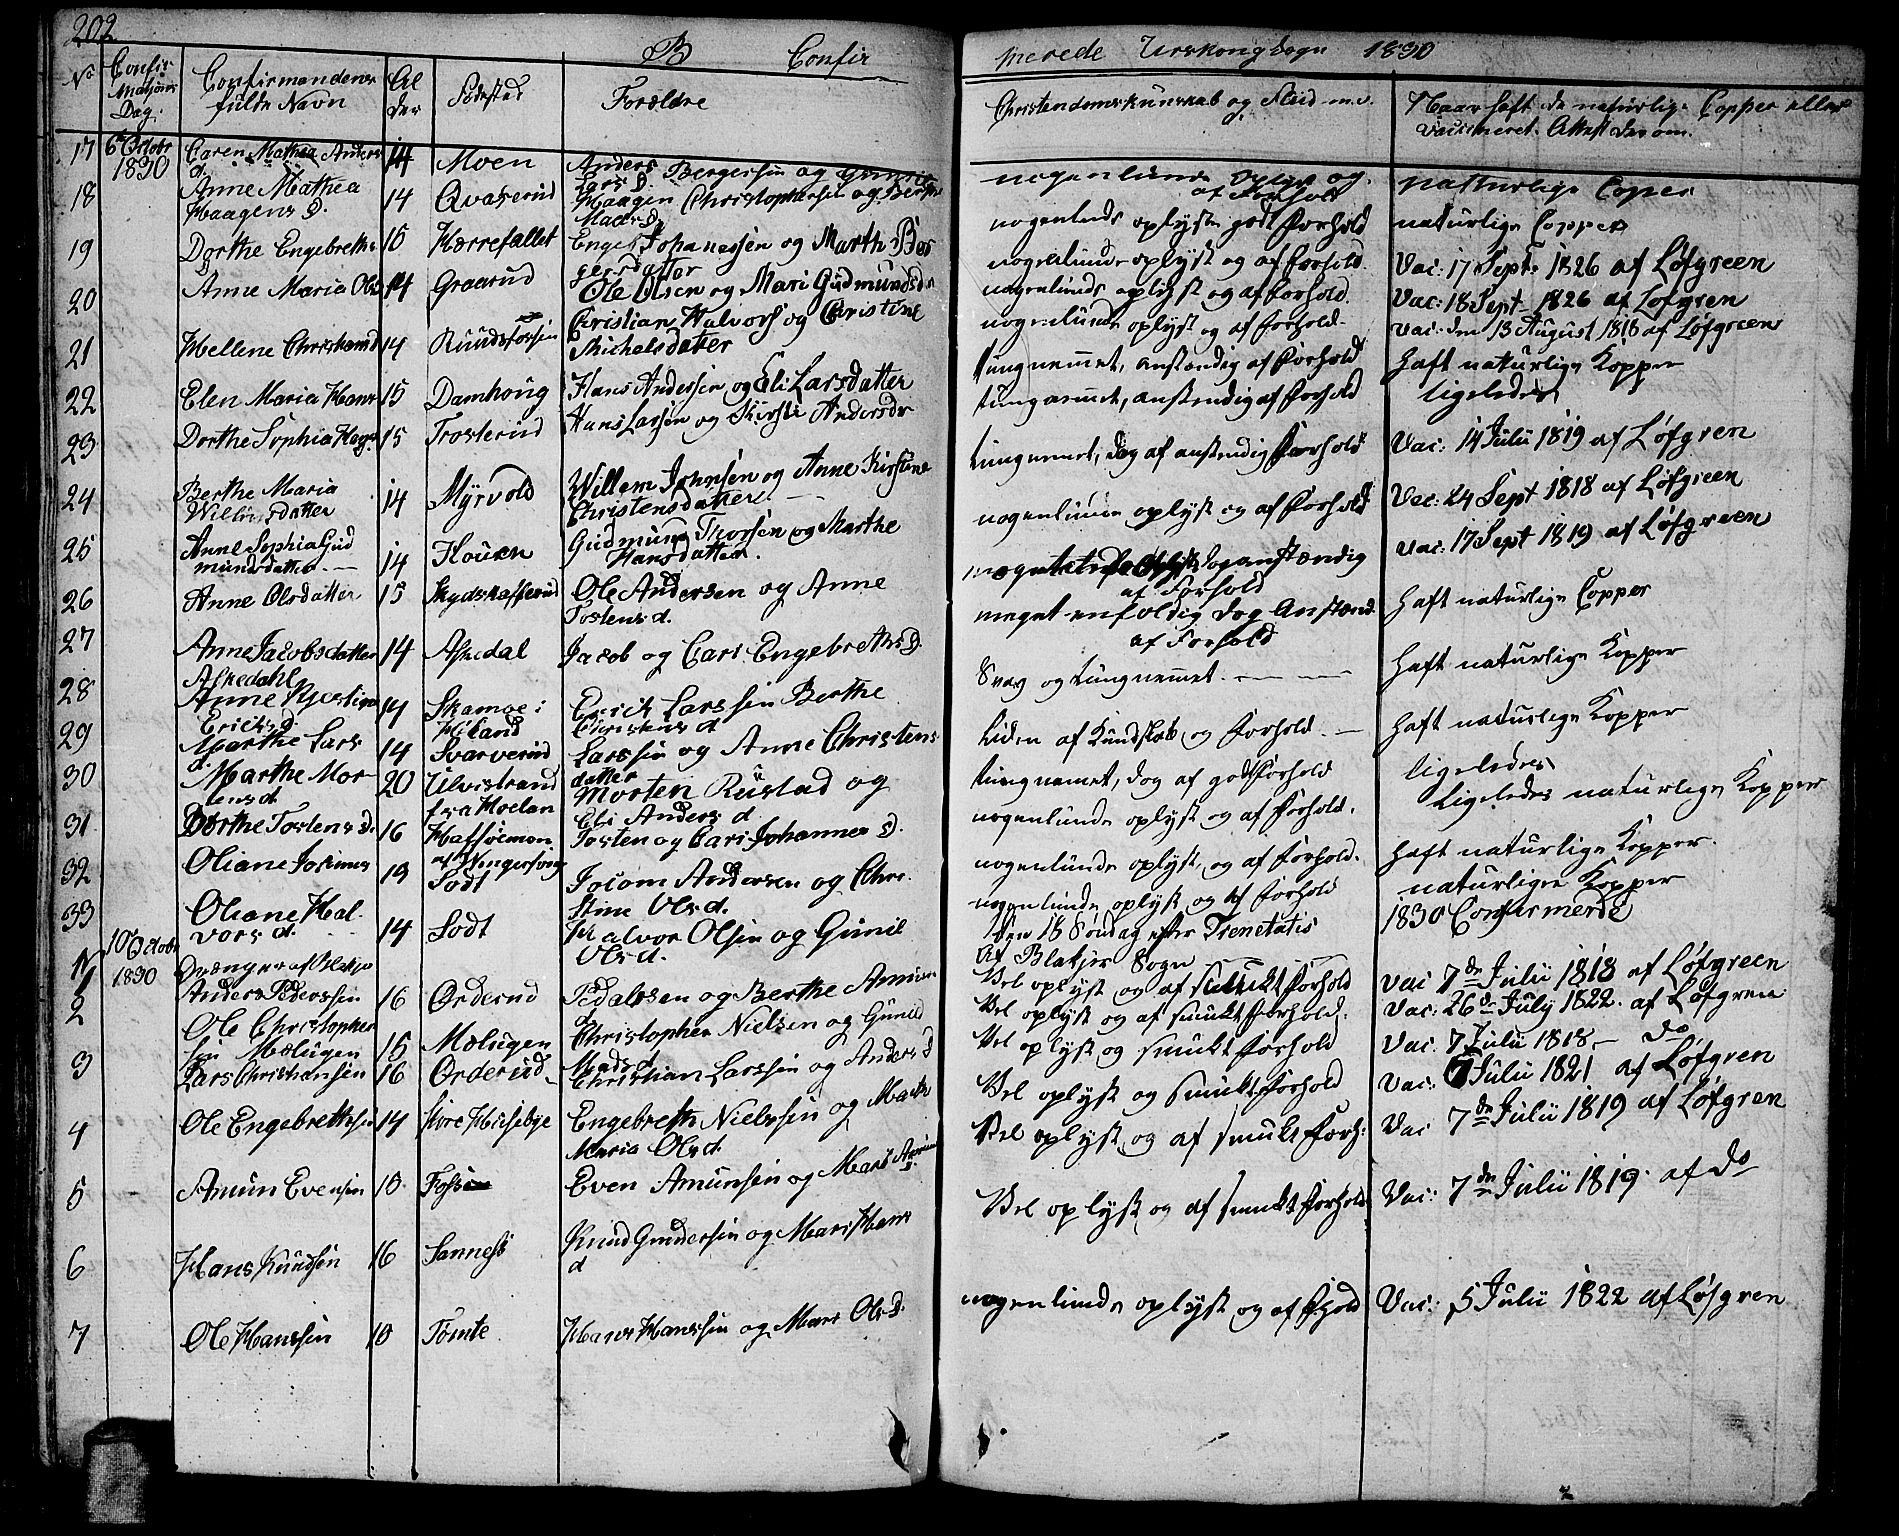 202
B Confir merede Urskongsogn 1830
No Confirmations Dag. Confirmandens fulde Navn Alder Fødested Forældre Christendomskunskab og Flid m.v. Naar haft de naturlige Copper eller vaccineret. Attest derom.
17 6 Octobr 1830 Caren Mathea Anders d. 14 Moen Anders Bergersen og Lars D. nogenlunde oplyst og af Forhold naturlige Coper
18 Anne Mathea Haagens D. 14 Qvaserud Haagen Christophersen og Mads D nogenlunde oplyst godt Forhold naturlige Copper
19 Dorthe Engebreths D 15 Kærrefallet Engeb Johannessen og Marth Bergersdatter nogenlunde oplyst og af Forhold. Vac: 17 Sept. 1826 af Løfgreen
20 Anne Maria Ols 14 Graarud Ole Olsen og Mari Gudmundsd nogenlunde oplyst og af Forhold. Vac: 18 Sept 1826 af Løfgren
21 Hellene Christiansd 14 Ruudsfossen Christian Halvors og Christine Michelsdatter nogenlunde oplyst og af Forhold. Vac: den 13 August 1818 af Løfgreen
22 Elen Maria Hans 15 Damhoug Hans Andersen og Eli Larsdatter tungnemmet, anstændig af Forhold haft naturlige Kopper
23 Dorthe Sophia Hans 15 Trosterud Hans Larsen og Kirsti Andersdr tungnemmet, anstendig af Forhold ligeledes
24 Berthe Maria Willumsdatter 14 Myrvold Willem Johnsen og Anne Kirstine Christensdatter tungnemmet, dog af anstendig Forhold Vac: 14 Julii 1819 af Løfgren
25 Anne Sophia Gudmundsdatter 14 Houen Gudmund Thorsen og Marthe Hansdatter. nogenlunde oplyst og af Forhold Vac: 24 Sept 1818 af Løfgreen
Vac: 17 Sept 1819 af Løfgreen
26 Anne Olsdatter 15 Skydskafferud Ole Andersen og Anne Tostens d. dog anstændig af Forhold haft naturlige Copper
27 Anne Jacobsdatter Askedahl 14 Askedal Jacob og Cari Engebreths D. meget enfoldig dog Anstænd. af Forhold haft naturlige Kopper
28 Anne Kjerstine Ericks D. 14 Skamoe i Høland Erich Larssen Berthe Christens d Svag og tungnemmet. haft naturlige Kopper
29 Marthe Lars d. 14 Svarverud Larssen og Anne Christensdatter Liden af Kundskab og Forhold. ligeledes
30 Marthe Mortens d. 20 Ulvestrand fra Hoelan Morten Rustad og Eli Anders d tungnemet, dog af godt Forhold Ligeledes naturlige Kopper
31 Dorthe Tostens D. 16 Haffsiemon af Wingersong Tosten og Cari Johannes D. nogenlunde oplyst og af Forhold. haft naturlige Kopper.
32 Oliane Jocums 19 Sodt Jocom Andersen og Christine Ols d. nogenlunde oplyst og af Forhold. naturlige Kopper
33 Oliane Halvors d. 14 Sodt Halvor Olsen og Gunil Ols d. nogenlunde oplyst og af Forhold
10 Octobr 1830 Drænger af Blakjer Den 18 Søndag efter Trenetatis 1830 Confirmerde
Af Blakjer Sogn
1 Anders Pederssen 16 Orderud Ped Larsen og Berthe Amunds d Vel oplyst og af smukt Forhold Vac 7de Julii 1818 af Løfgreen
2 Ole Christophersen Mælugen 15 Mælugen Christopher Nielsen og Gunild Mads d Vel oplyst og af smukt Forhold. Vac: 26de July 1822. af Løfgren
3 Lars Christiansen 16 Orderud Christian Larssen og Anders D Vel oplyst og smukt Forhold Vac: 7 Julii 1818 do
4 Ole Engebrethsen 14 Store Husebye Engebreth Nielssen og Marth Maria Ols d. Vel oplyst og smukt Forhold Vac: 7 Julii 1821 af Løfgren
5 Amun Evensen 10 Foss Even Amunsen og Mari Vel oplyst og af smukt Forh: Vac 7de Julii 1819 af Løfgren
6 Hans Knudsen 16 Sannesb Knud Gundersen og Mari Hans d Vel oplyst og af smukt Forhold Vac: 7de Julii 1819. af do
7 Ole Hanssen 10 Tomte Hans Hanssen og Mari Ols D. nogenlunde oplyst og af Fhold Vac: 5 Julii 1822 af Løfgren